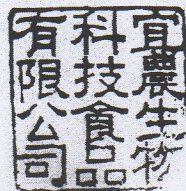 宜農生物
科技食品
有限公司